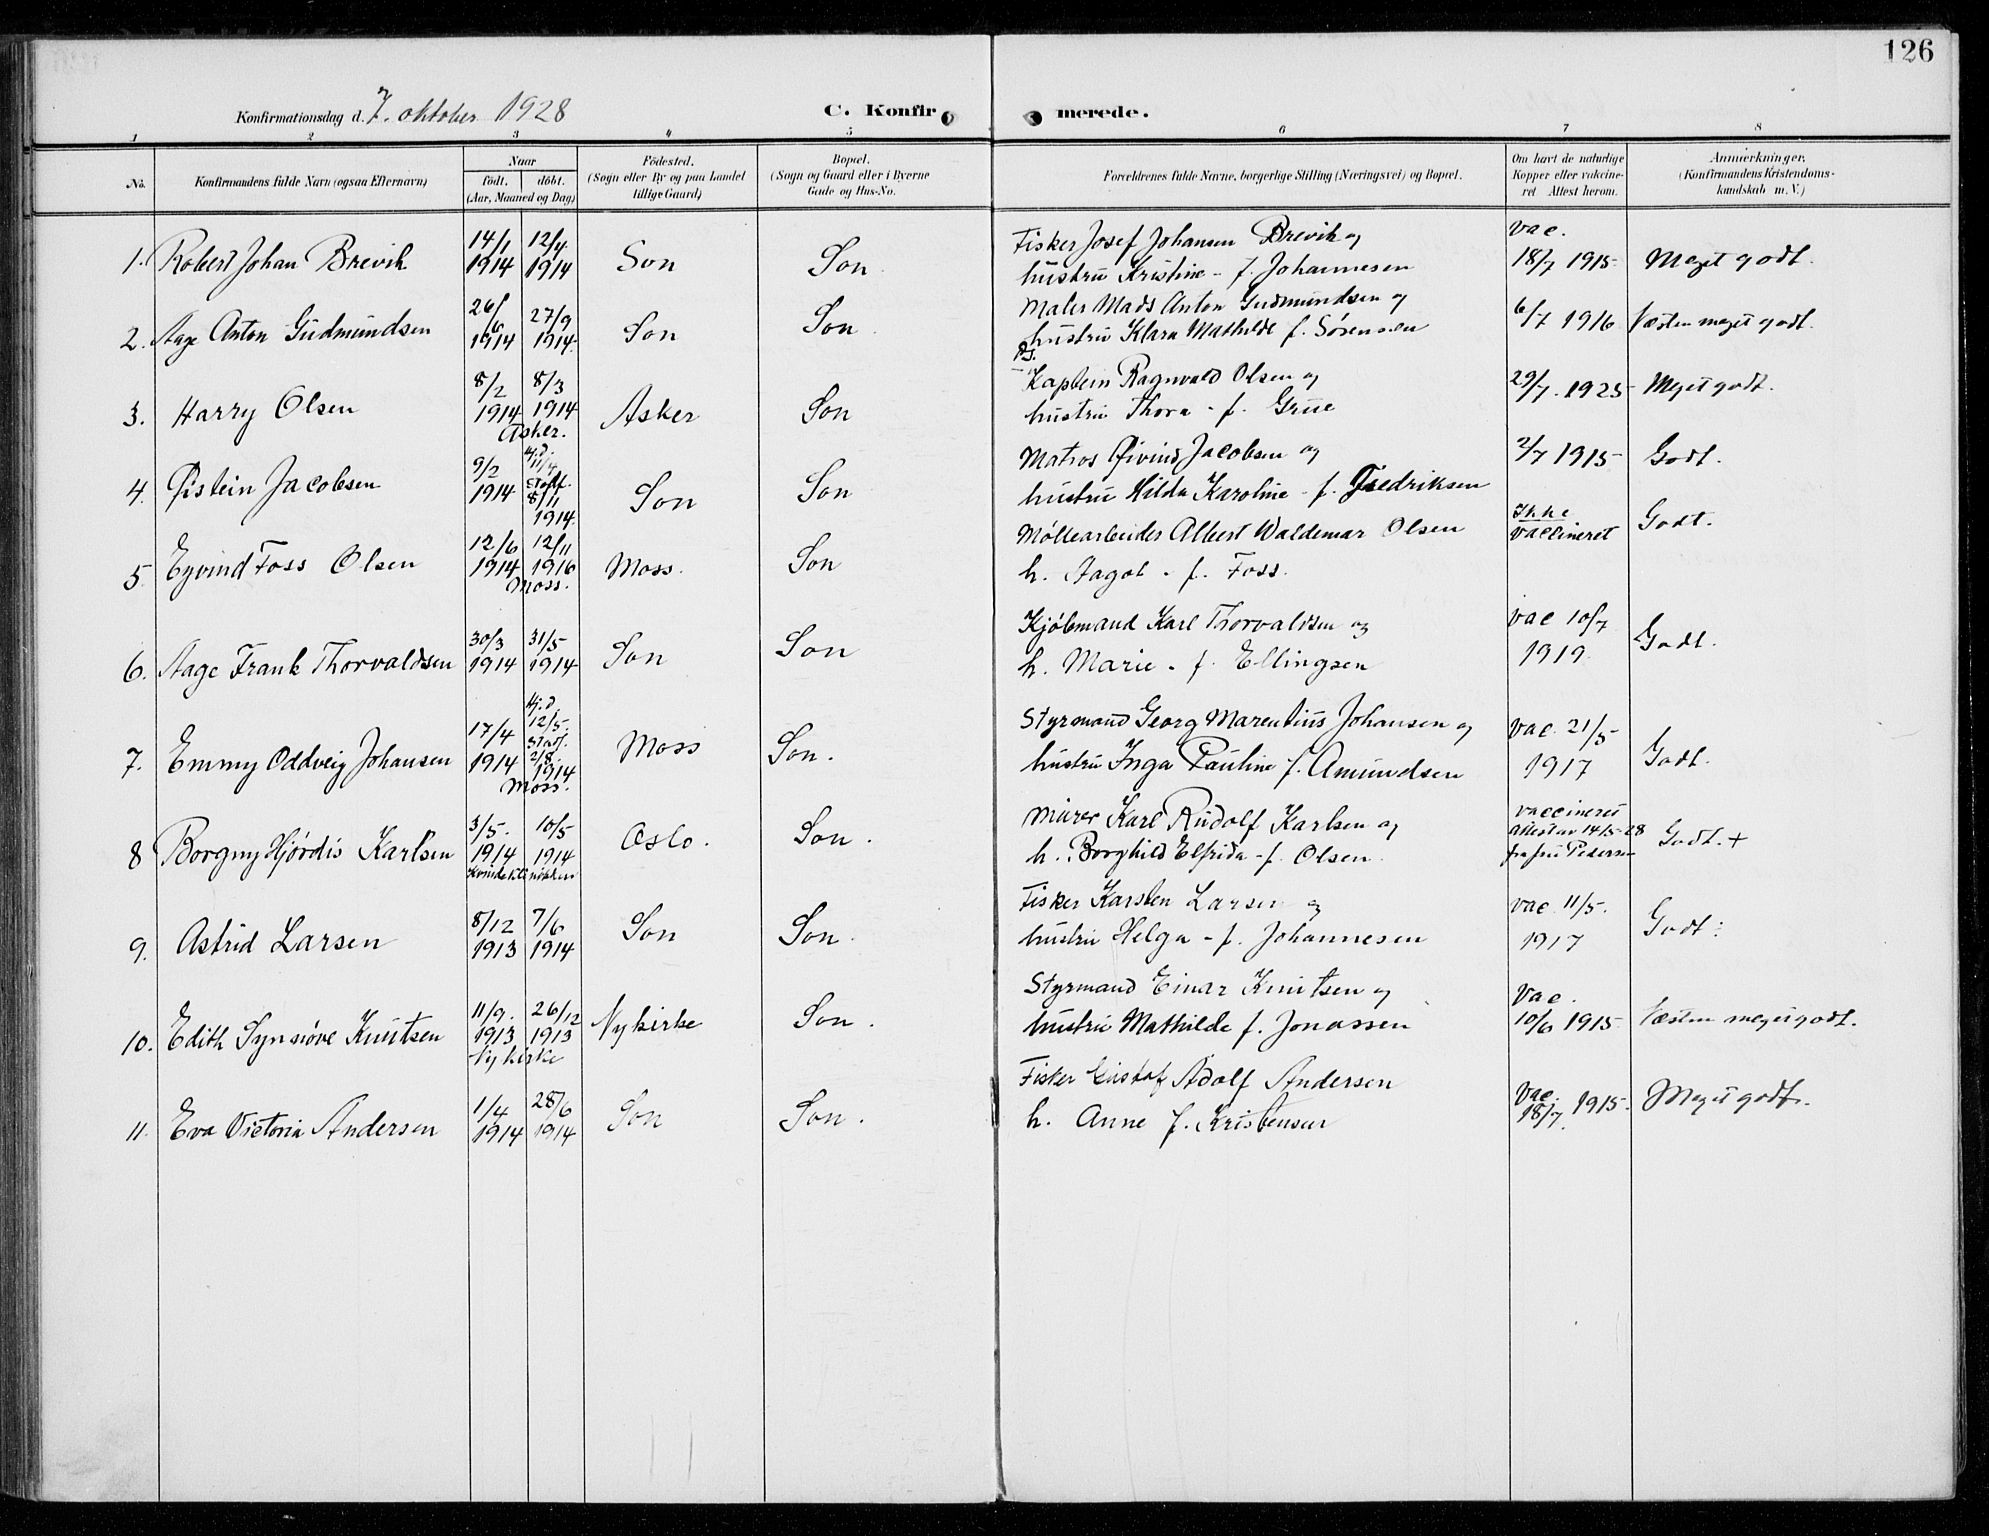 126
Konfirmationsdag d. 7. oktober 1928
C. Konfirmerede.
1 2 3 4 5 6 7 8
No.
Konfirmandens fulde Navn (ogsaa Efternavn)
Naar
födt. döbt.
(Aar, Maaned og Dag)
Födested.
(Sogn eller By og paa Landet
tillige Gaard)
Bopæl.
(Sogn og Gaard eller i Byerne
Gade og Hus-No.
Forældrenes fulde Navne, borgerlige Stilling (Næringsvei) og Bopæl.
Om havt de naturlige
Kopper eller vakcine-
ret Attest herom.
Anmærkninger.
(Konfirmandens Kristendoms-
kundskab m. V.)
1. Robert Johan Brevik 14/1 1914 12/4 1914 Son Son
Fisker Josef Johansen Brevik og
hustru Kristine - f. Johannesen
vac.
18/7 1915 Meget godt.
2. Aage Anton Gudmundsen 26/6 1914 27/9 1914 Son Son
Maler Mads Anton Gudmundsen og
hustru Klara Mathilde f. Sørensen
6/7 1916 Næsten meget godt.
3. Harry Olsen 8/2 1914 8/3 1914 Asker. Asker Son
Kaptein Ragnvald Olsen og
hustru Thora - f. Grue
29/7. 1925 Meget godt.
4. Øistein Jacobsen 9/2 1914 Hj.d. 11/4 Stadf. 8/11 1914. Son Son
Matros Øivind Jacobsen og
hustru Hilda Karoline - f. Fredriksen
2/7 1915 Godt.
5. Eyvind Foss Olsen 12/6 1914 12/11 1916 Moss. Moss. Son
Møllearbeider Albert Waldemar Olsen
h. Aagot - f. Foss.
Ikke
vaccineret Godt.
6. Aage Frank Thorvaldsen 30/3 1914 31/5 1914 Son Son
Kjøbmand Karl Thorvaldsen og
h. Marie - f. Ellingsen
vac 10/7
1919. Godt.
7. Emmy Oddveig Johansen 17/4 1914 Hj.d. 12/5. Stadf. 2/8. 1914 Moss. Moss Son.
Styrmand Georg Marentius Johansen og
hustru Inga Pauline f. Amundsen
vac. 21/5
1917 Godt.
8 Borgny Hjørdis Karlsen 3/5. 1914 10/5 1914 Oslo. Son.
Murer Karl Rudolf Karlsen og
h. Borghild Elfrida - f. Olsen.
vaccineret
attest av 14/5-28
fra fru Pedersen Godt. +
9. Astrid Larsen 8/12 1913 7/6 1914 Son Son.
Fisker Karsten Larsen og
hustru Helga - f. Johannesen
vac. 11/5.
1917 Godt.
10. Edith Synnøve Knutsen 11/9. 1913 26/12 1913 Nykirke Nykirke Son.
Styrmand Einar Knutsen og
hustru Mathilde f. Jonassen
Vac.
10/6 1915. Næsten meget godt.
11. Eva Victoria Andersen 1/4 1914 28/6 1914 Son Son.
Fisker Gustaf Adolf Andersen
h. Anne f. Kristensen
Vac.
18/7 1915. Meget godt.